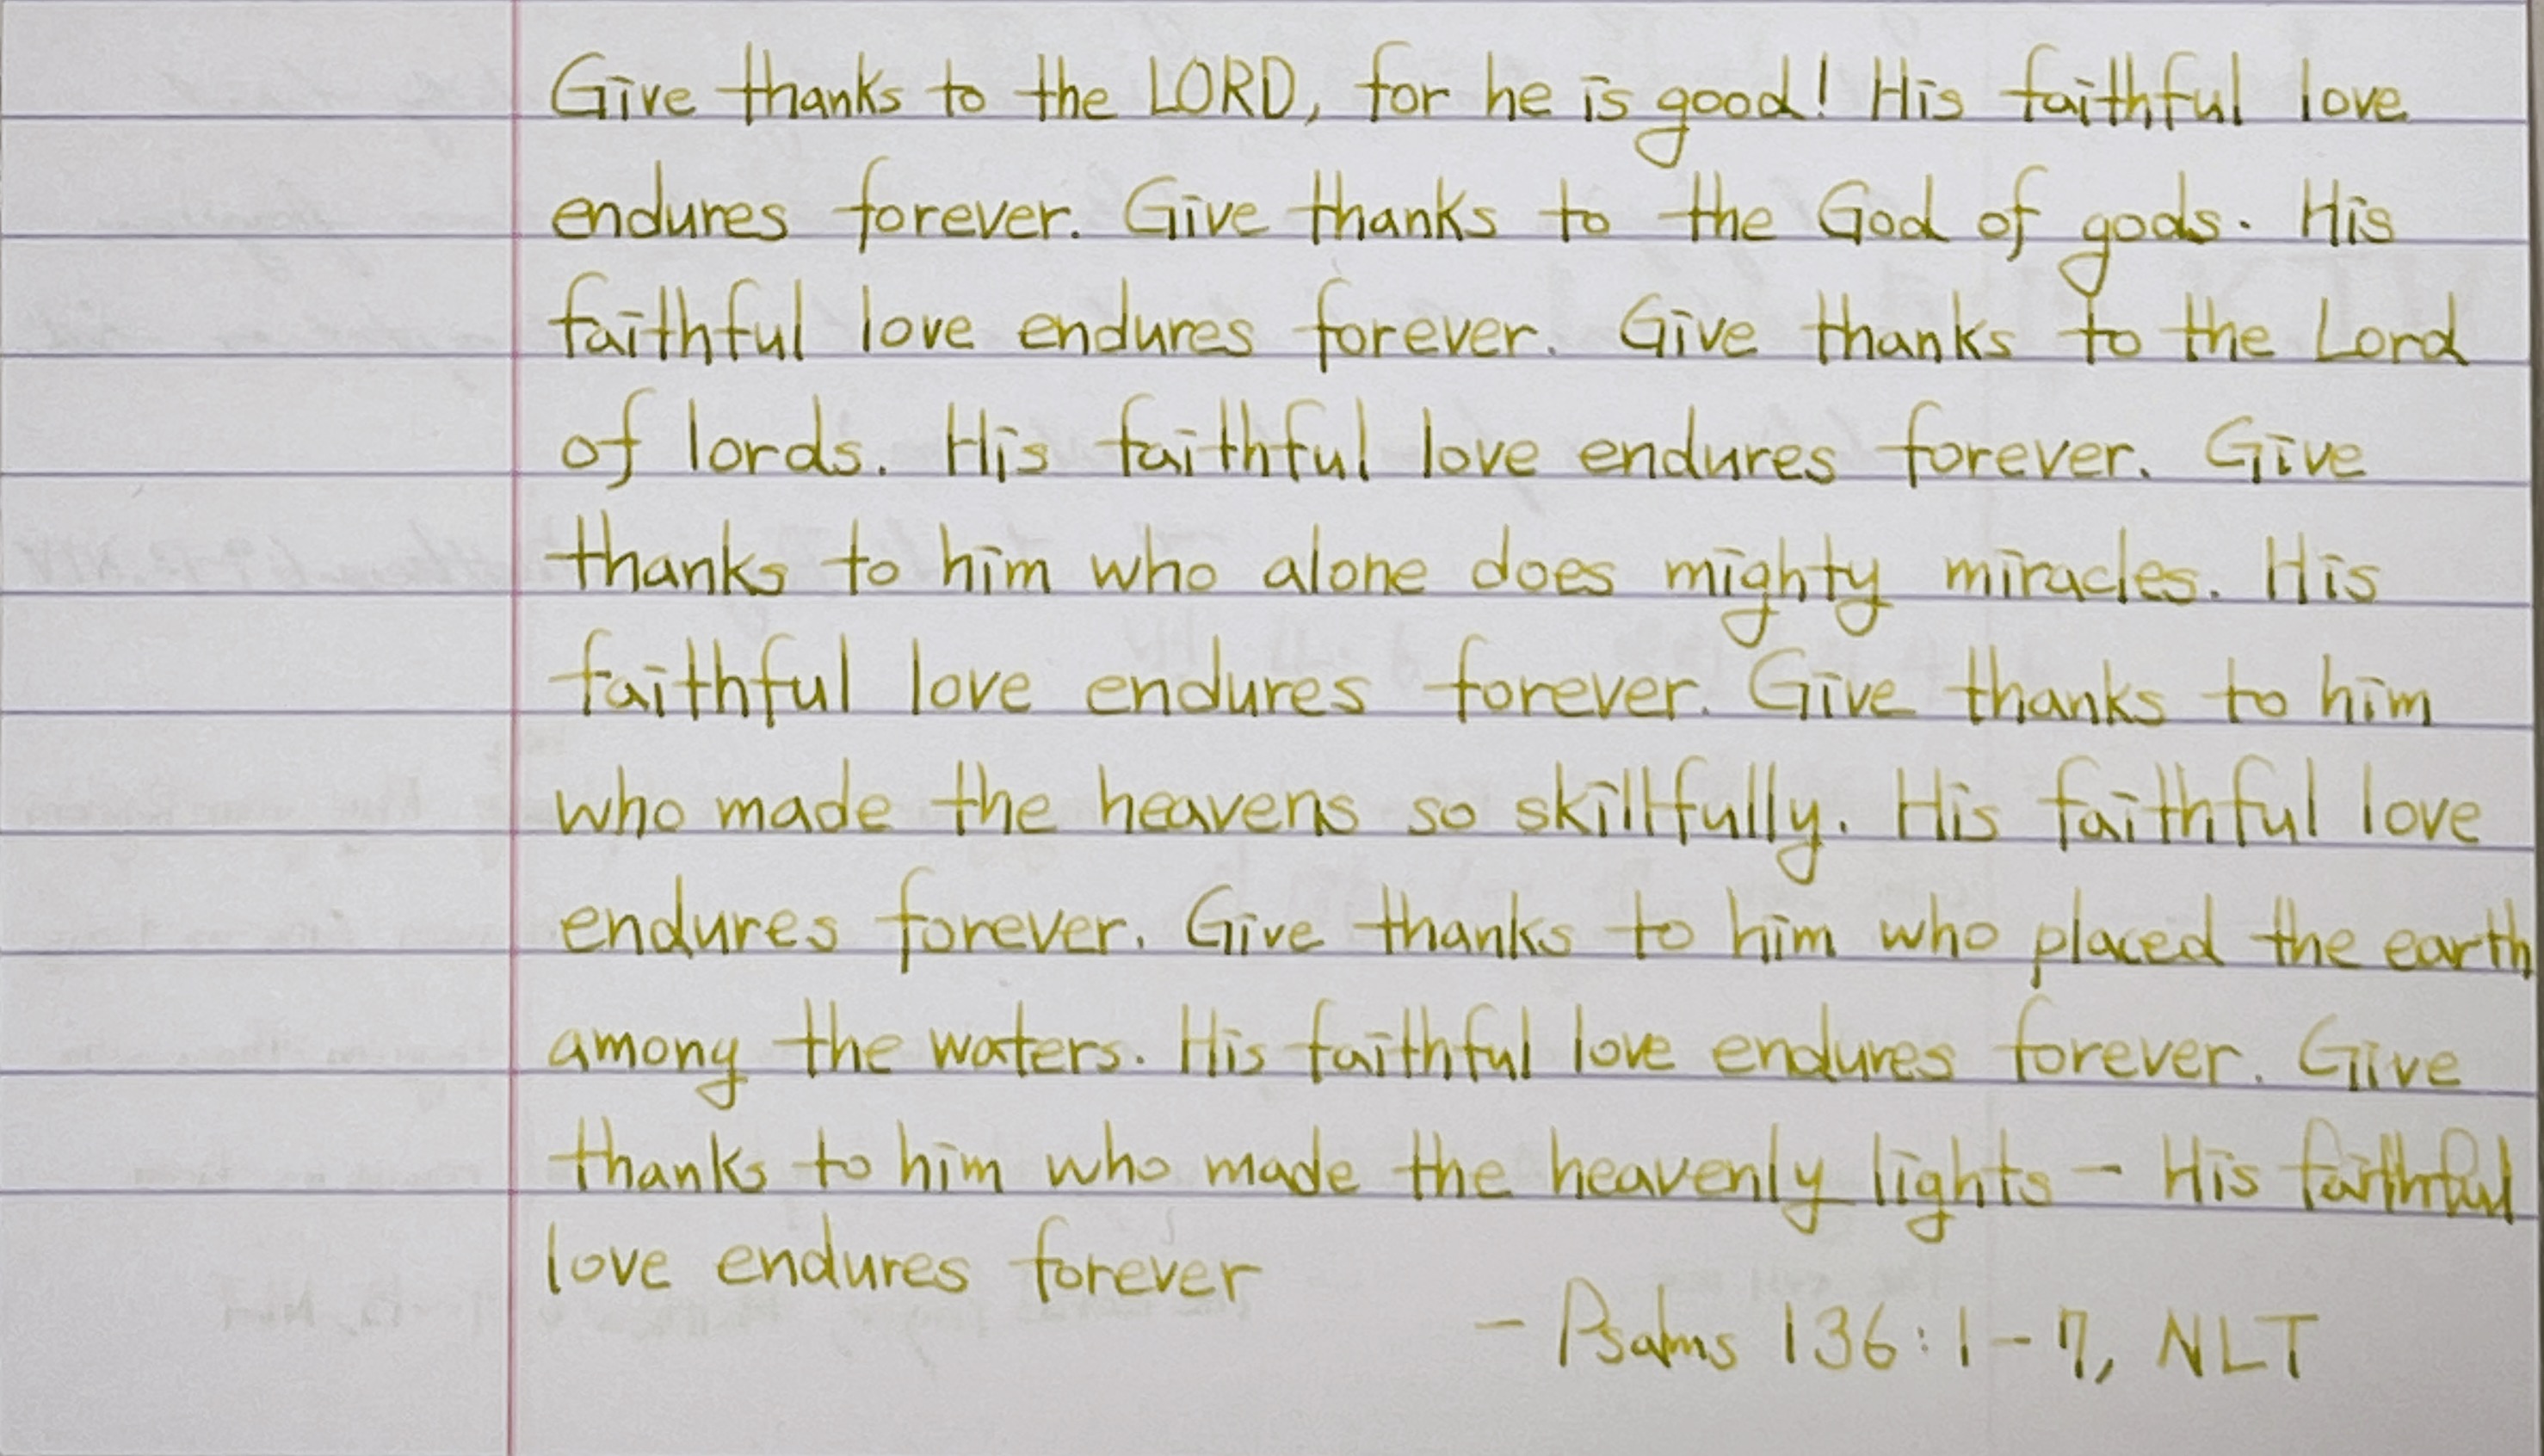 Give thanks to the LORD, for he is good! His faithful love
endures forever. Give thanks to the God of gods. His
faithful love endures forever. Give thanks to the Lord
of lords. His faithful love endures forever. Give
thanks to him who alone does mighty miracles. His
faithful love endures forever. Give thanks to him
who made the heavens so skillfully. His faithful love
endures forever. Give thanks to him who placed the earth
among the waters. His faithful love endures forever. Give
thanks to him who made the heavenly lights - His faithful
love endures forever
- Psalms 136:1-7, NLT